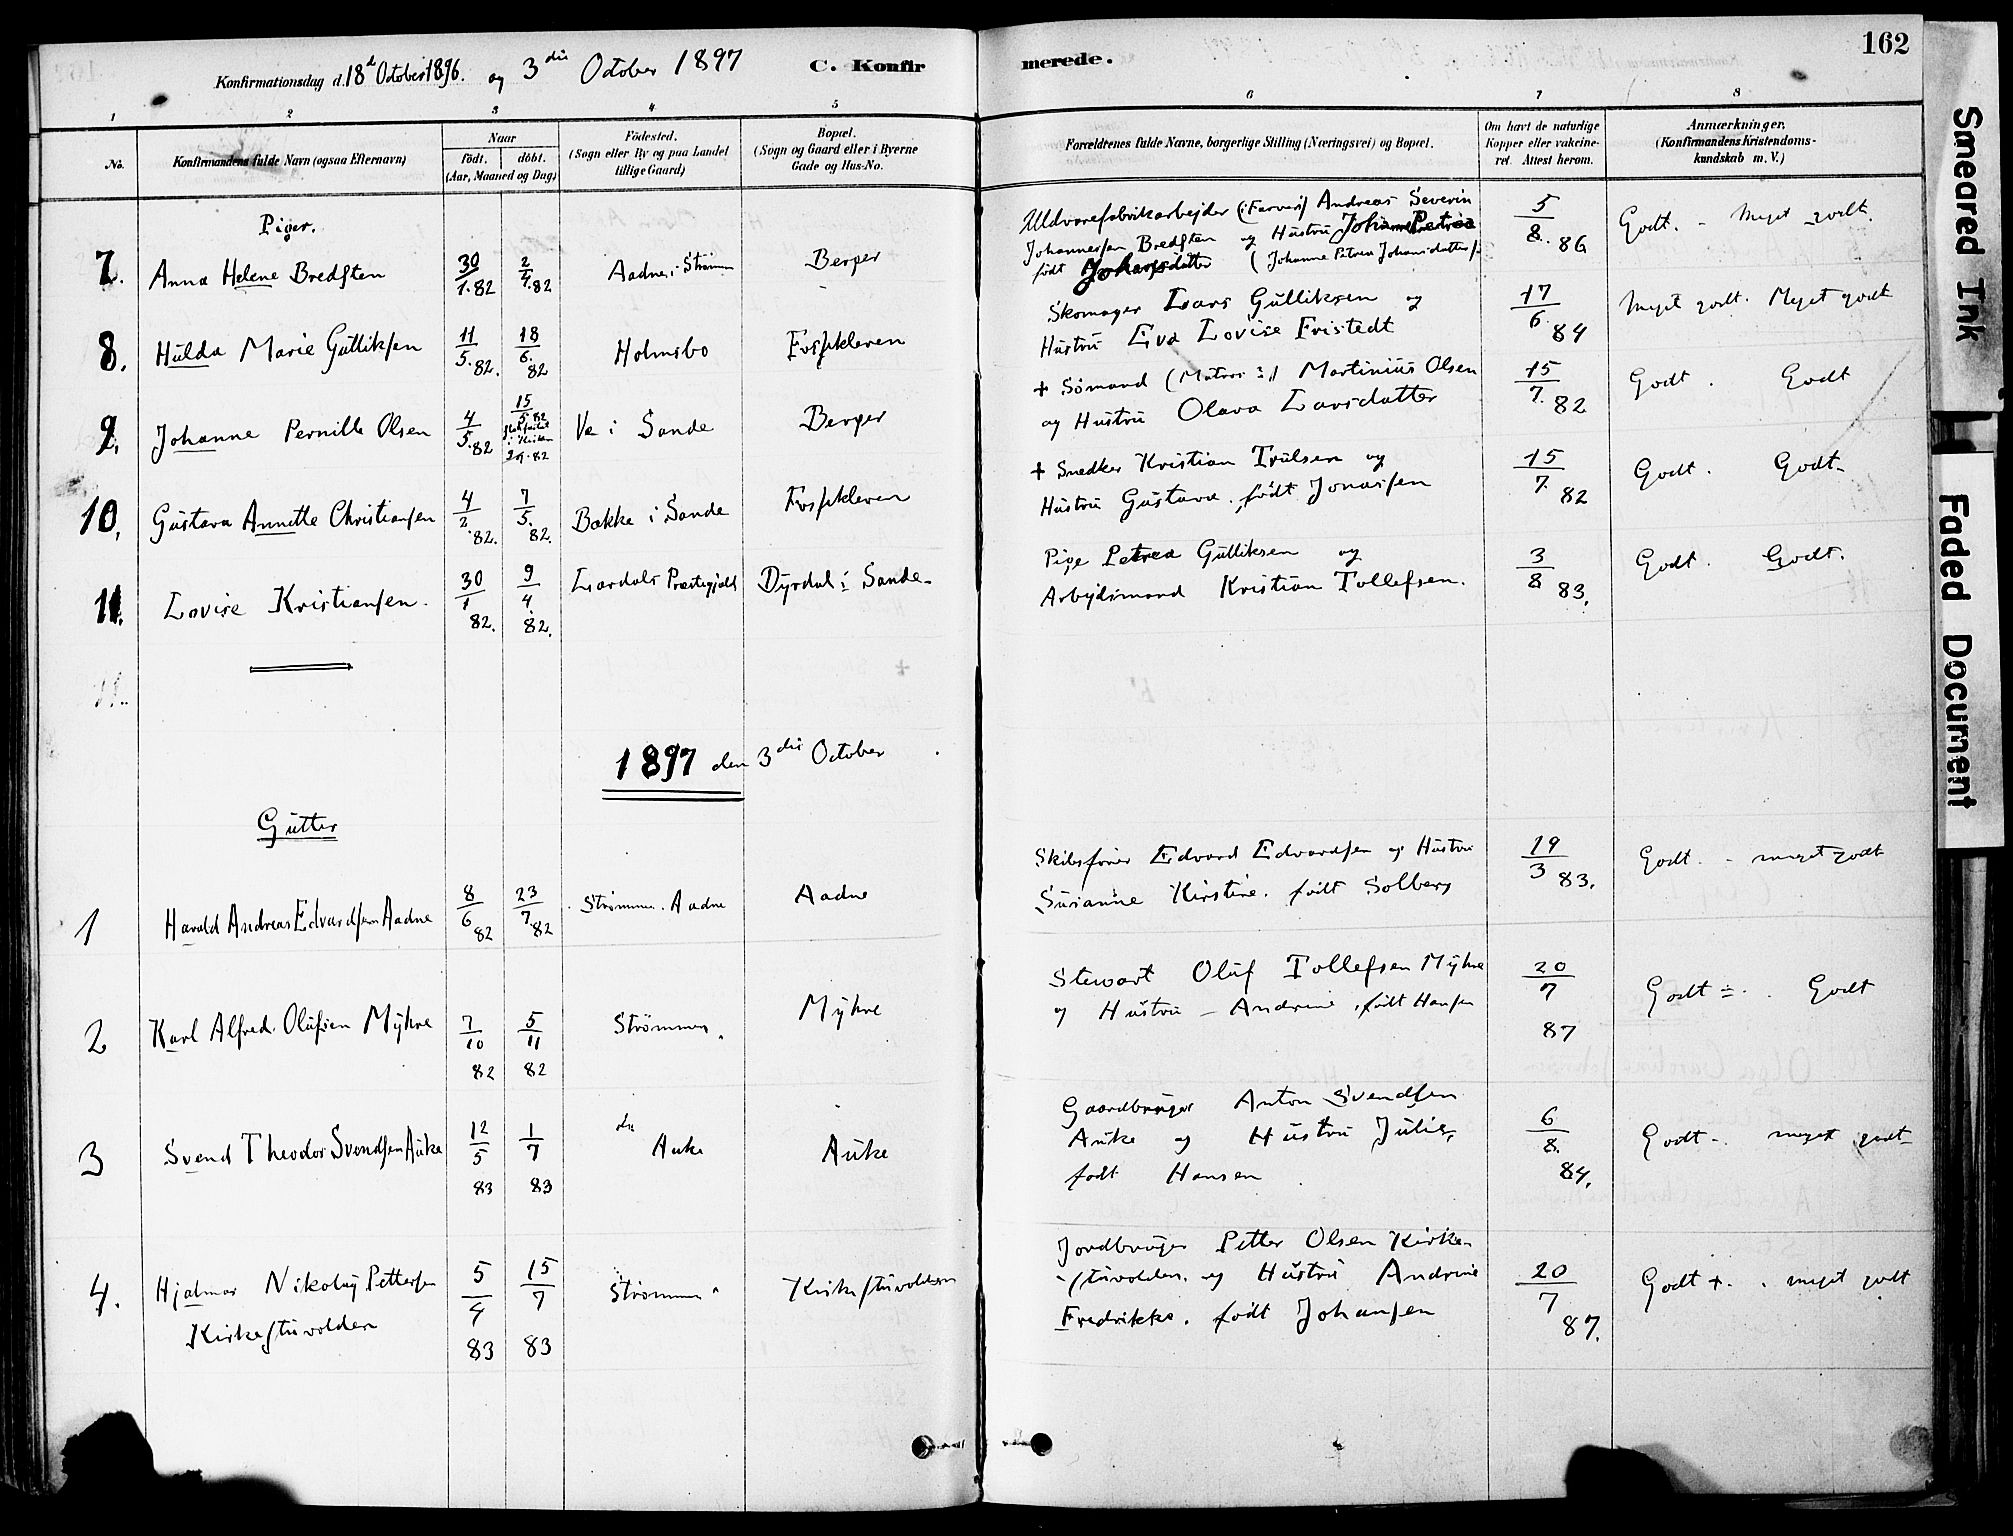 162
Konfirmationsdag d. 18d October 1896. og 3die October 1897 C. Konfirmerede.
1 2 3 4 5 6 7 8
No.
Konfirmandens fulde Navn (ogsaa Efternavn)
Naar
födt. döbt.
(Aar, Maaned og Dag)
Födested.
(Sogn eller By og paa Landet
tillige Gaard)
Bopæl.
(Sogn og Gaard eller i Byerne
Gade og Hus-No.
Forældrenes fulde Navne, borgerlige Stilling (Næringsvei) og Bopæl.
Om havt de naturlige
Kopper eller vakcine-
ret. Attest herom.
Anmærkninger,
(Konfirmandens Kristendoms-
kundskab m. V.)
Piger.
7. Anna Helene Bredsten 30/1.82 2/4.82 Aadne i Strömm Berger
Uldvarefabrikarbejder (: Farveri) Andreas Severin
Johannessen Bredsten og Hustru Johanne Petrea
født Johansdatter (Johanne Petrea Johansdatter)
5/8. 86 Godt. - Meget godt.
8. Hulda Marie Gulliksen 11/5.82. 18/6.82 Holmsbo Fossekleven
Skomager Lars Gulliksen og
Hustru Eva Lovise Fristedt
17/6. 84 Meget godt. Meget godt
9. Johanne Pernille Olsen 4/5.82 15/5 82 i Kirken Ve i Sande Berger
+ Sömand (Matros) Martinius Olsen
og Hustru Olava Larsdatter
15/7. 82 Godt. Godt
10. Gustava Annette Christiansen 4/2.82. 7/5.82. Bakke i Sande Fossekleven
+ Snedker Kristian Trulsen og
Hustru Gustava, født Jonassen
15/7. 82 Godt. Godt.
11. Lovise Kristiansen. 30/1 82. 9/4.82. Lardals Præstegjeld Dyrdal i Sande.
Pige Petrea Gulliksen og
Arbejdsmand Kristian Tollefsen.
3/8 83. Godt. Godt.
1897 den 3die October
Gutter
1 Harald Andreas Edvardsen Aadne 8/6 82 23/7.82 Strømmen. Aadne Aadne
Skibsfører Edvard Edvardsen og Hustru
Susanne Kirstine, født Solberg
19/3 83. Godt. - meget godt
2 Karl Alfred Olufsen Myhre 7/10 82 5/11 82 Strömmen. Myhre
Stewart Oluf Tollefsen Myhre
og Hustru - Andrine, født Hansen
20/7 87 Godt Godt
3 Svend Theodor Svendsen Auke 12/5 83 1/7 83 Auke Auke
Gaardbruger Anton Svendsen
Auke og Hustru Julie,
født Hansen
6/8. 84. Godt - meget godt
4. Hjalmar Nikolay Pettersen 5/4 83 15/7 83 Strömmen Kirkestuvolden
Kirkestuvolden
Jordbruger Petter Olsen Kirke-
stuvolden, og Hustru Andrine
Fredrikke, født Johansen
20/7 87. Godt +. meget godt
Smeared Ink
Faded Document